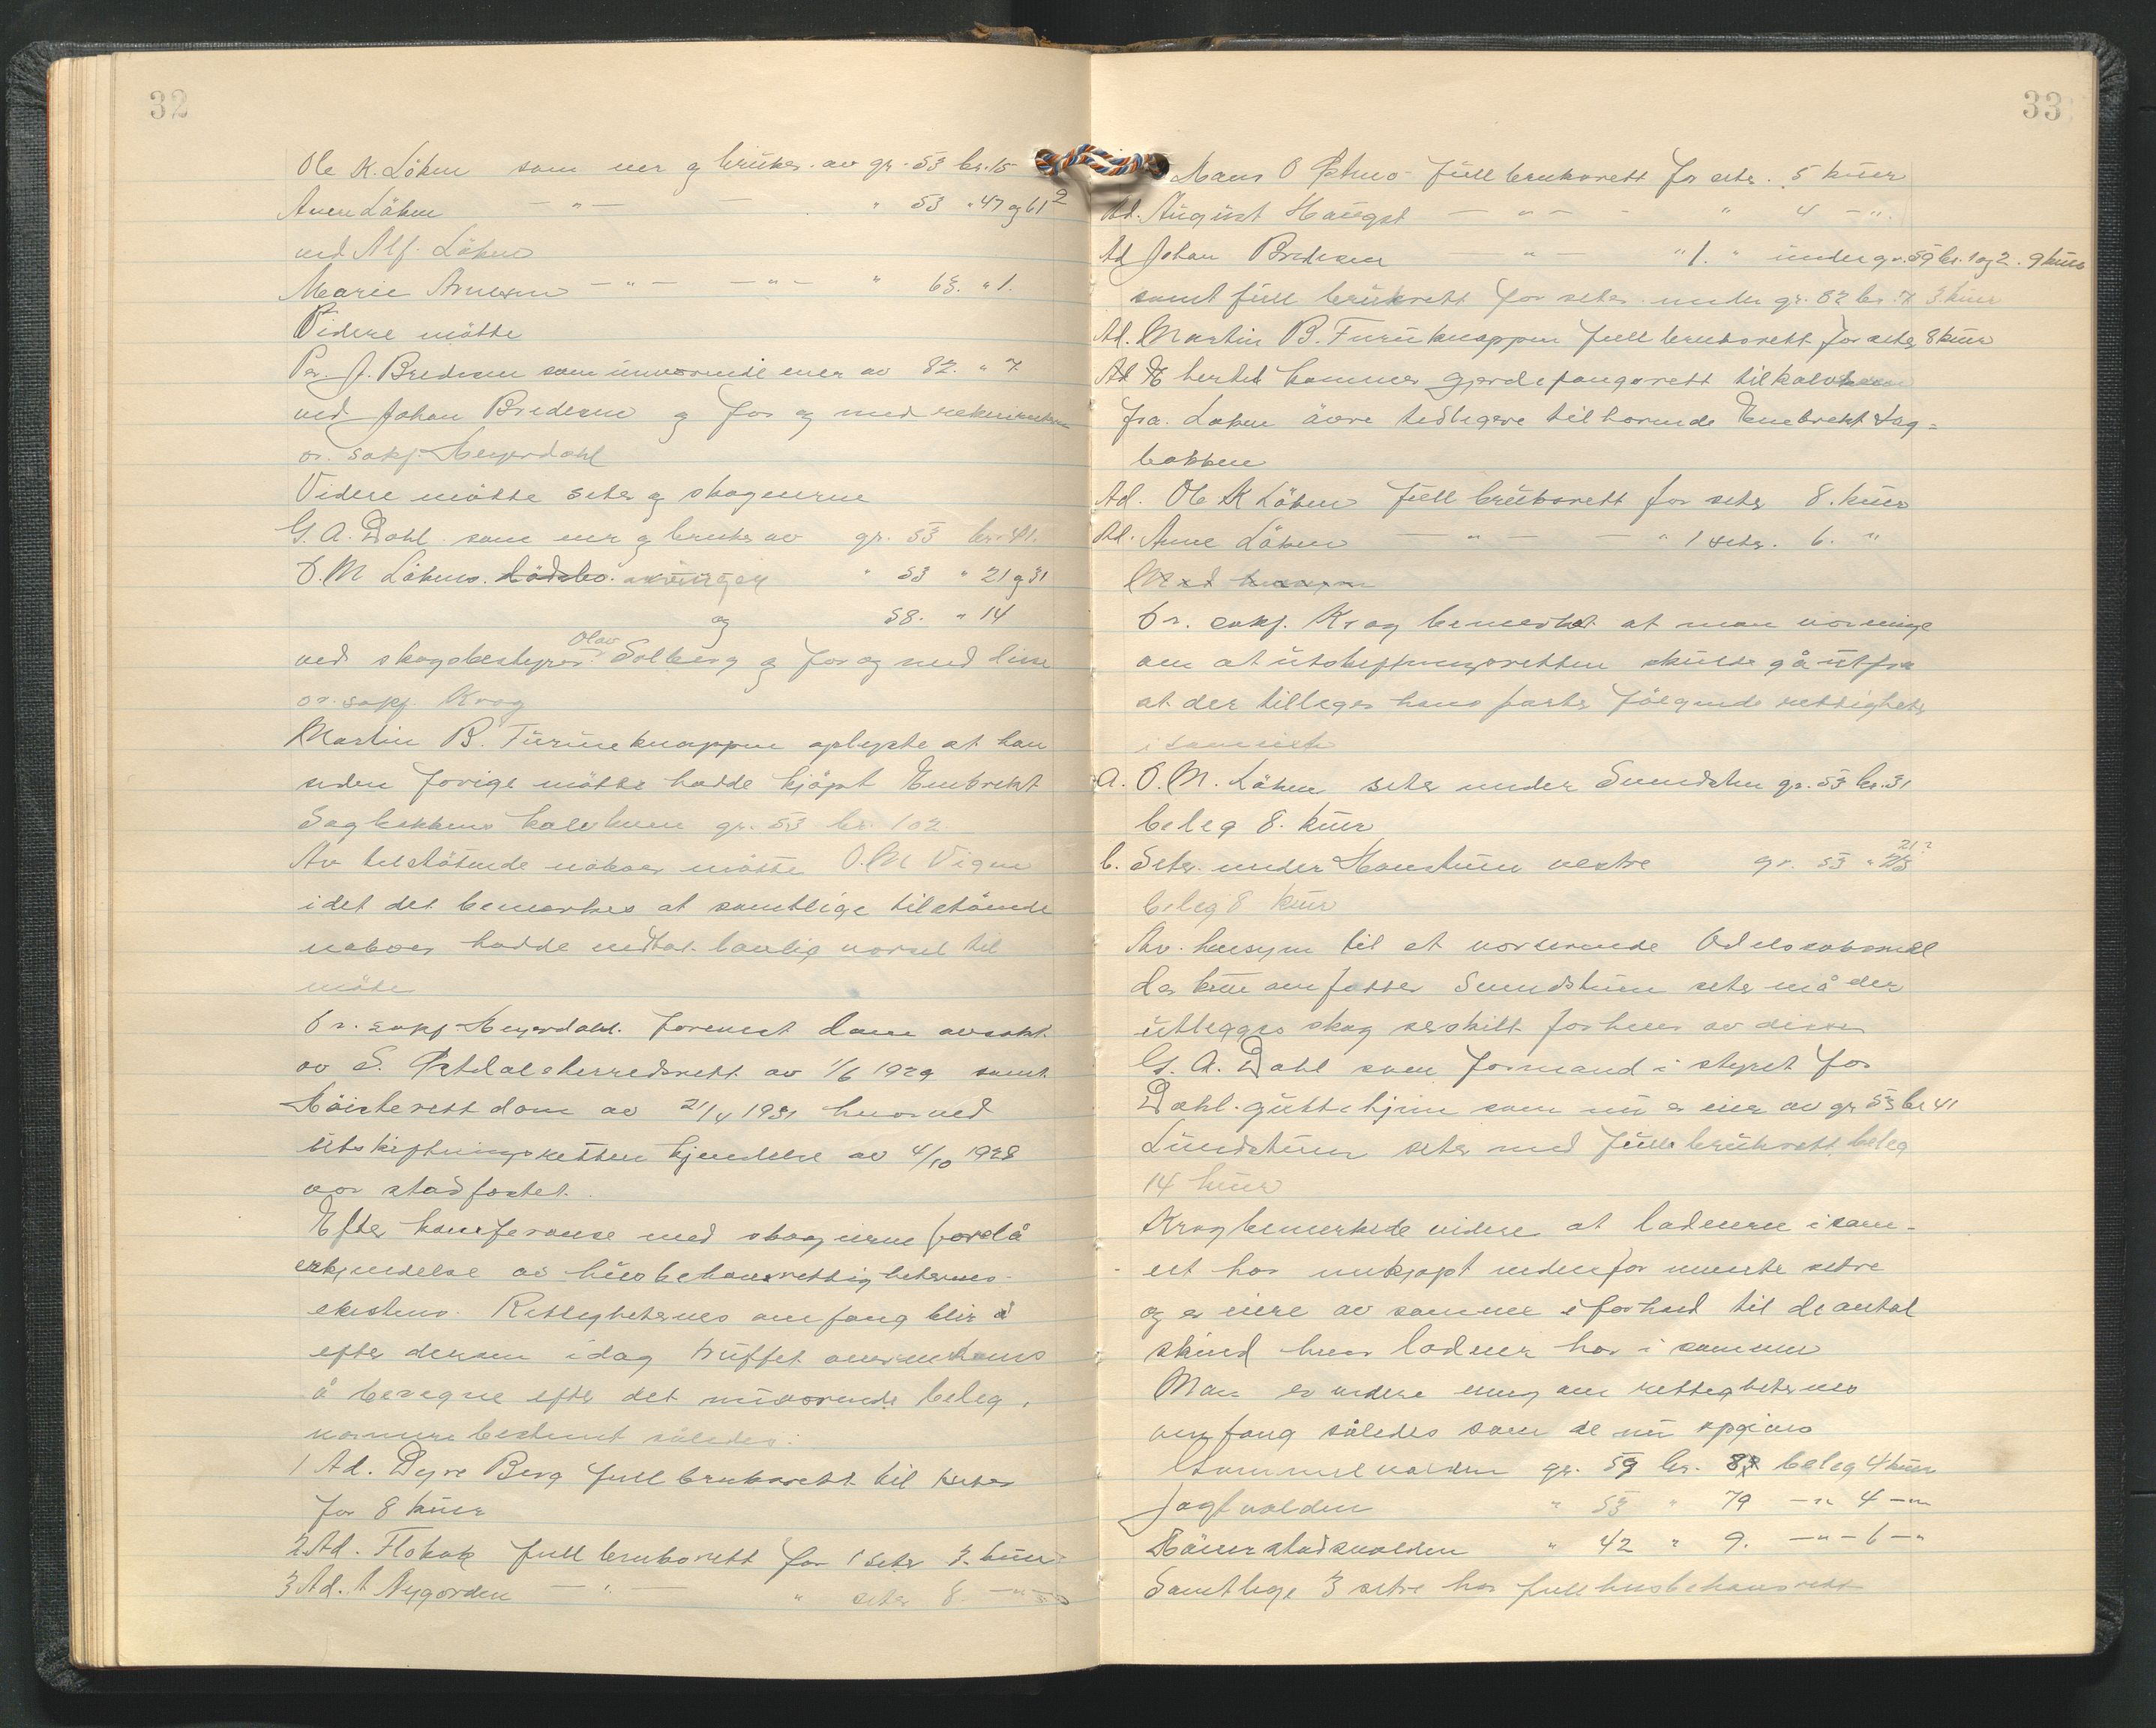 32
Ole K. Löken som eier og bruker av gr. 53 br. 15
Anne Löken — " — — " 53 " 47 og 61²
ved Alf. Löken
Marie Arnesen — " — — " — " 63. " 1.
Videre mötte
Per. J. Bredesen som nuværende eier av 82. " 7
ved Johan Bredesen og for og med
or. sakf. Heyerdahl
Videre mötte seter og skogeierne
G. A. Dahl som eier og bruker av gr. 53 br. 41.
O. M Lökens dödsbo. " 53 " 21 og 31
og 58. " 14
ved skogsbestyrer Olav Solberg og for og med disse
or. sakf. Krog
Martin B. Furuknappen oplyste at han
siden forrige mötte hadde kjöpt Embrekt
Sagbakkens gr. 53 br. 102
Av tilstötende naboer mötte O. M Vigen
idet det bemerkes at samtlige tilstötende
naboer hadde mottat lovlig varsel til
möte
Or. sakf. Heyerdahl. foreviste dom avsakt
av S. Østdal herredsrett av 1/6 1929 samt
Höisterett dom av 21/4 1931 hvorved
Utskiftningsrettens kjendelse av 4/10 1928
var stadfæstet.
Efter konferanse med skogeierne forelå
erkjendelse av husbehovsrettighetenes
eksistens. Rettighetenes omfang blir å
efter densom idag truffet overenskoms
å beregne efter det nuværende beleg,
nærmere bestemt således:
1 Ad. Dyre Berg full bruksrett til seter
for 8 kuer
2 Ad. Flokok full bruksrett for 1 seter 3. kuer
3 Ad. A Nygorden — " — " seter 8. — " —
33
Hans O Østmo full bruksrett for seter. 5 kuer
Ad. August Haugst — " — " 4 — " .
Ad Johan Bredesen — " — " 1. " under gr. 59 br. 1 og 2. 9 kuer
samt full bruksrett for seter under gr. 82 br. 7 3. kuer
Ad. Martin B. Furuknappen full bruksrett for seter 8 kuer
Ad kommer gjerdefangsrett til
fra. Loken övre tidligere tilhorende Embrekt Sag-
bakken
Ad. Ole K Löken full bruksrett for seter 8. kuer
Ad. Anne Löken — " — — " 1 seter. 6. "
Or. sakf. Krog bemerket at man var enige
om at utskiftningsretten skulde gå ut fra
at der tilleges hans parter fölgende rettigheter
i sameiet
a. O. M. Löken seter under Sundstun gr. 53 br. 31
beleg 8. kuer
b. Seter under Haustuen vestre gr. 53 " 21?
beleg 8 kuer
Av. hensyn til et værserende Odelssaksmål
der kun omfatter Sundstuen seter må der
utlegges skog serskilt for hver av disse
G. A. Dahl som formand i styret for
Dahl guttehjem som nu er eier av gr 53 br 41
Lundstuen seter med full bruksrett beleg
14 kuer
Krog bemerkede videre at lodeierne i sam-
eiet har innkjøpt nedenfor nevnte setre
og er eiere av samme i forhold til de antal
skind hver lodeier har i sammen
Man er videre enig om rettighetenes
omfang således som de nu opgives
gr. 59 br. 8 beleg 4 kuer
Jagtvolden " 53 " 79 — " 4 — "
" 42 " 9. — " — 6 — "
Samtlige 3 setre har full husbehovsrett